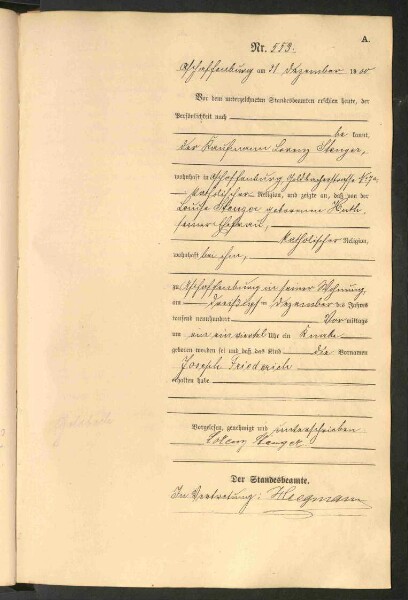 A.
Nr. 553.
Aschaffenburg am 31 Dezember 1900
Vor dem unterzeichneten Standesbeamten erschien heute, der
Persönlichkeit nach
be kannt,
der Kaufmann Lorenz Stenger,
wohnhaft in Aschaffenburg, Goldbacherstrasse
katholischer Religion, und zeigte an, daß von der
Louise Stenger geborenen Huth,
seiner Ehefrau,
katholischer Religion,
wohnhaft bei ihm,
zu Aschaffenburg in seiner Wohnung,
am dreißigsten Dezember des Jahres
tausend neunhundert Vor mittags
um ein einviertel Uhr ein Knabe
geboren worden sei und daß das Kind die Vornamen
Joseph Friederich
erhalten habe
Vorgelesen, genehmigt und unterschrieben
Lorenz Stenger
Der Standesbeamte.
In Vertretung: Hegmann